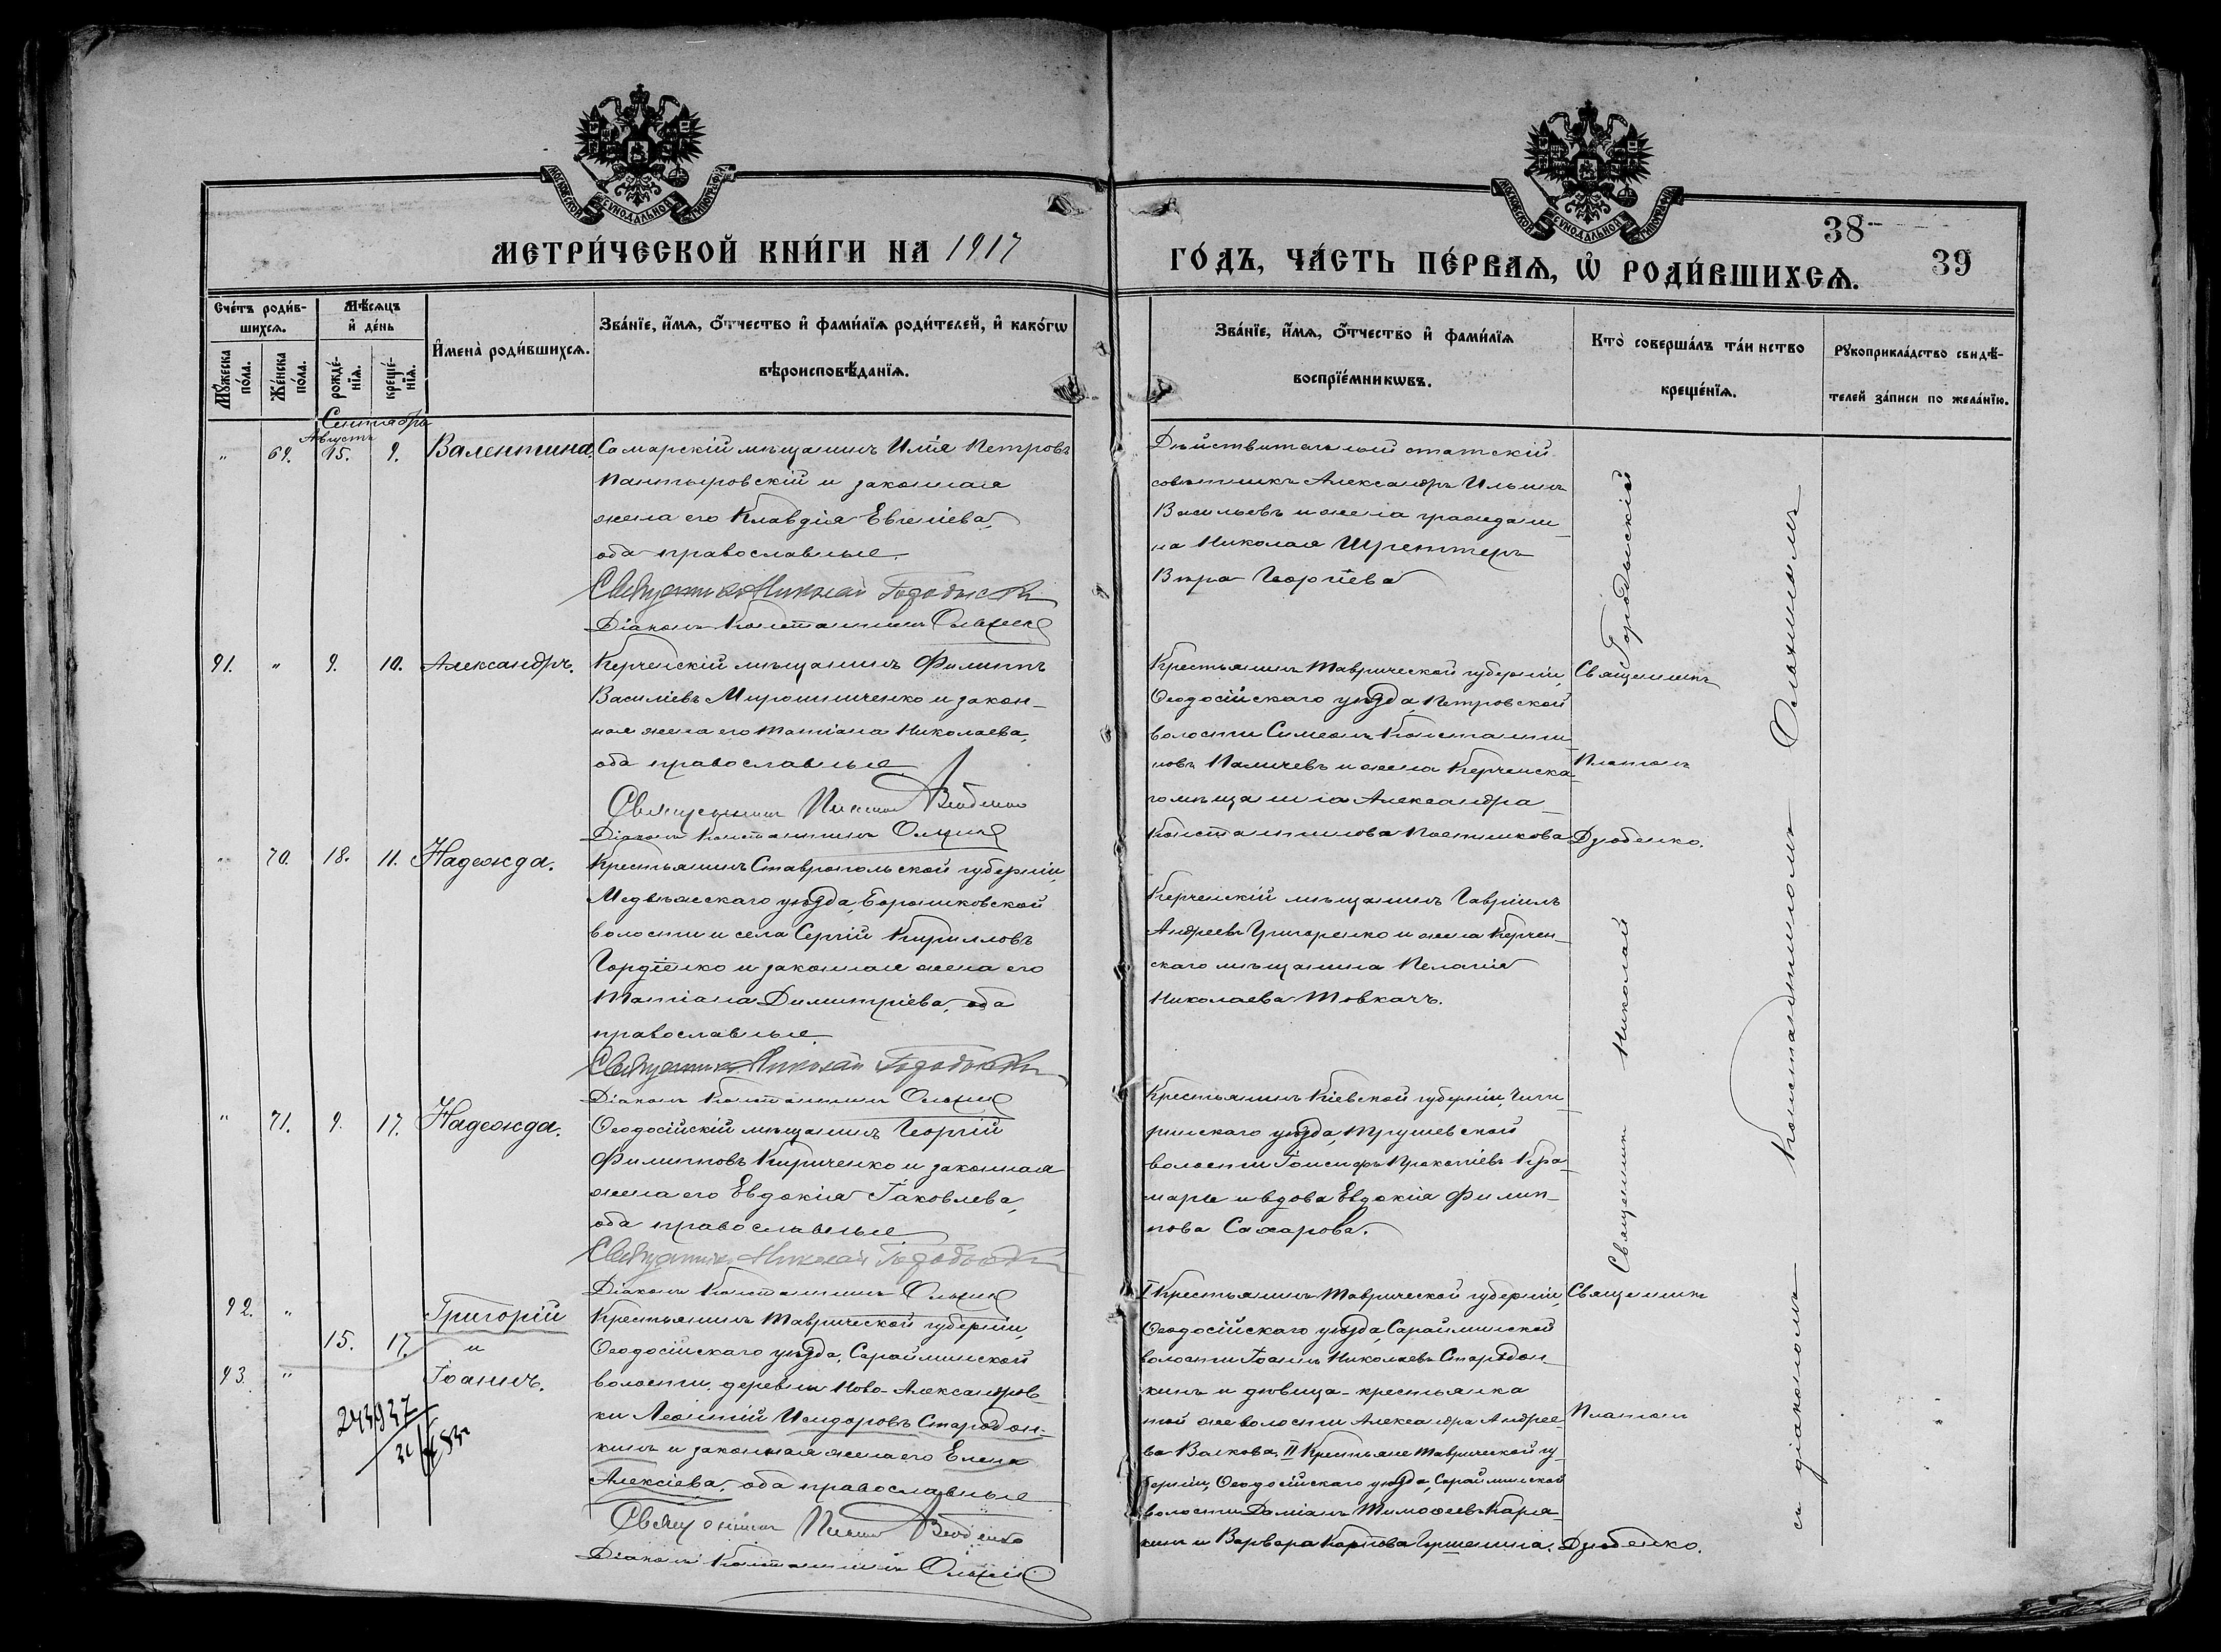 МОСКОВСКОЙ СУНОДАЛЬНОЙ ТИПОГРАФІИ
МОСКОВСКОЙ СУНОДАЛЬНОЙ ТИПОГРАФІИ
МЕТРИ́ЧЕСКОЙ КНИ́ГИ НА 1917
ГО́ДЪ, ЧА́СТЬ ПЕ́РВАѦ, Ѡ҆ РОДИ́ВШИХСѦ.
38
39
Сче́тъ роди́в-
шихсѧ.
Мѣ́сѧцъ
и҆ де́нь
Мꙋ́жеска по́ла.
Же́нска по́ла.
рожде́-нїѧ.
креще́-нїѧ.
И҆мена̀ роди́вшихсѧ.
Зва́нїе, и҆́мѧ, ѻ҆́тчество и҆ фами́лїѧ роди́телей, и҆ како́гѡ
вѣроисповѣ́данїѧ.
Зва́нїе, и҆́мѧ, ѻ҆́тчество и҆ фами́лїѧ
воспрїе́мникѡвъ.
Кто̀ соверша́лъ та́инство
креще́нїѧ.
Рꙋкоприкла́дство свидѣ́-
телей за́писи по жела́нїю.
Сентябрь
Августъ
" 69. 15. 9. Валентина.
Самарскій мѣщанинъ Илія Петровъ
Пантыровскій и законная
жена его Клавдія Евгеніева,
оба православные.
Священникъ Николай Городыскій
Діаконъ Константинъ
Дѣйствительный статскій
совѣтникъ Александръ Ильинъ
Васильевъ и жена граждани-
на Николая Шрентеръ
Вѣра Георгіева
91. " 9. 10. Александръ.
Керченскій мѣщанинъ Филиппъ
Василіевъ Мирошниченко и закон-
ная жена его Татіана Николаева,
оба православные
Священникъ Платонъ Дзюбенко
Діаконъ Константинъ
Крестьянинъ Таврической губерніи,
Ѳеодосійскаго уѣзда, Петровской
волости Симеонъ Константи-
новъ Паличевъ и жена Керченска-
го мѣщанина Александра
Константинова Постникова
Священникъ
Платонъ
Дзюбенко.
" 70. 18. 11. Надежда.
Крестьянинъ Ставропольской губерніи,
Медвѣжескаго уѣзда,
волости и села Сергій Кирилловъ
Гордіенко и законная жена его
Татіана Димитріева, оба
православные.
Священникъ Николай Городыскій
Діаконъ Константинъ
Керченскій мѣщанинъ Гавріилъ
Андреевъ Григоренко и жена Керчен-
скаго мѣщанина Пелагія
Николаева Товкачъ.
" 71. 9. 17. Надежда.
Ѳеодосійскій мѣщанинъ Георгій
Филипповъ Кириченко и законная
жена его Евдокія Іаковлева,
оба православные
Священникъ Николай Городыскій
Діаконъ Константинъ
Крестьянинъ Кіевской губерніи, Чиги-
ринскаго уѣзда, Трушевской
волости Іосифъ Прокопіевъ Кра-
марь и вдова Евдокія Филип-
пова Сахарова.
Священникъ Николай Городыскій
съ діакономъ Константиномъ
92. " Григорій
15. 17. и
93. " Іоаннъ.
243937
Крестьянинъ Таврической губерніи,
Ѳеодосійскаго уѣзда, Сарайминской
волости, деревни Ново-Александров-
ки Леонтій Исидоровъ Стародон-
кинъ и законная жена его Елена
Алексіева, оба православные
Священникъ Платонъ Дзюбенко
Діаконъ Константинъ
I Крестьянинъ Таврической губерніи,
Ѳеодосійскаго уѣзда, Сарайминской
волости Іоаннъ Николаевъ Стародон-
кинъ и дѣвица-крестьянка
той же волости Александра Андрее-
ва Волкова, II Крестьяне Таврической гу-
берніи, Ѳеодосійскаго уѣзда, Сарайминской
волости Даміанъ Тимоѳеевъ Каря-
кинъ и Варвара Карпова
Священникъ
Платонъ
Дзюбенко.